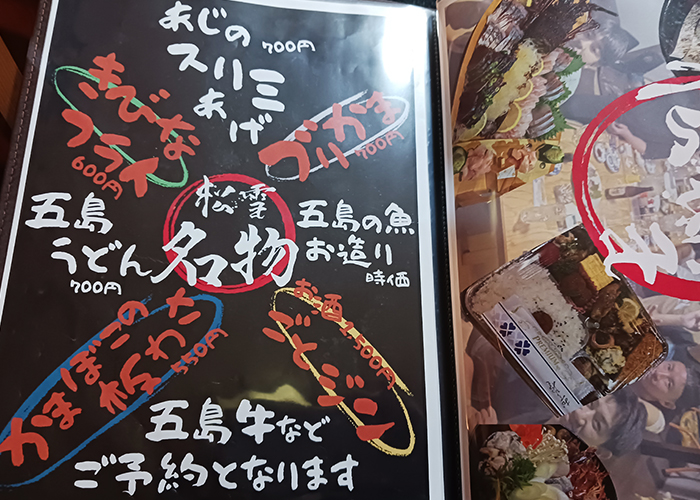 あじの
スリミ
あげ
700円
きびな
フライ
600円
ブリかま
700円
松雪
名物
五島
うどん
700円
五島の魚
お造り
時価
かまぼこの
板わさ
550円
お酒
ごとジン
五島牛など
ご予約となります